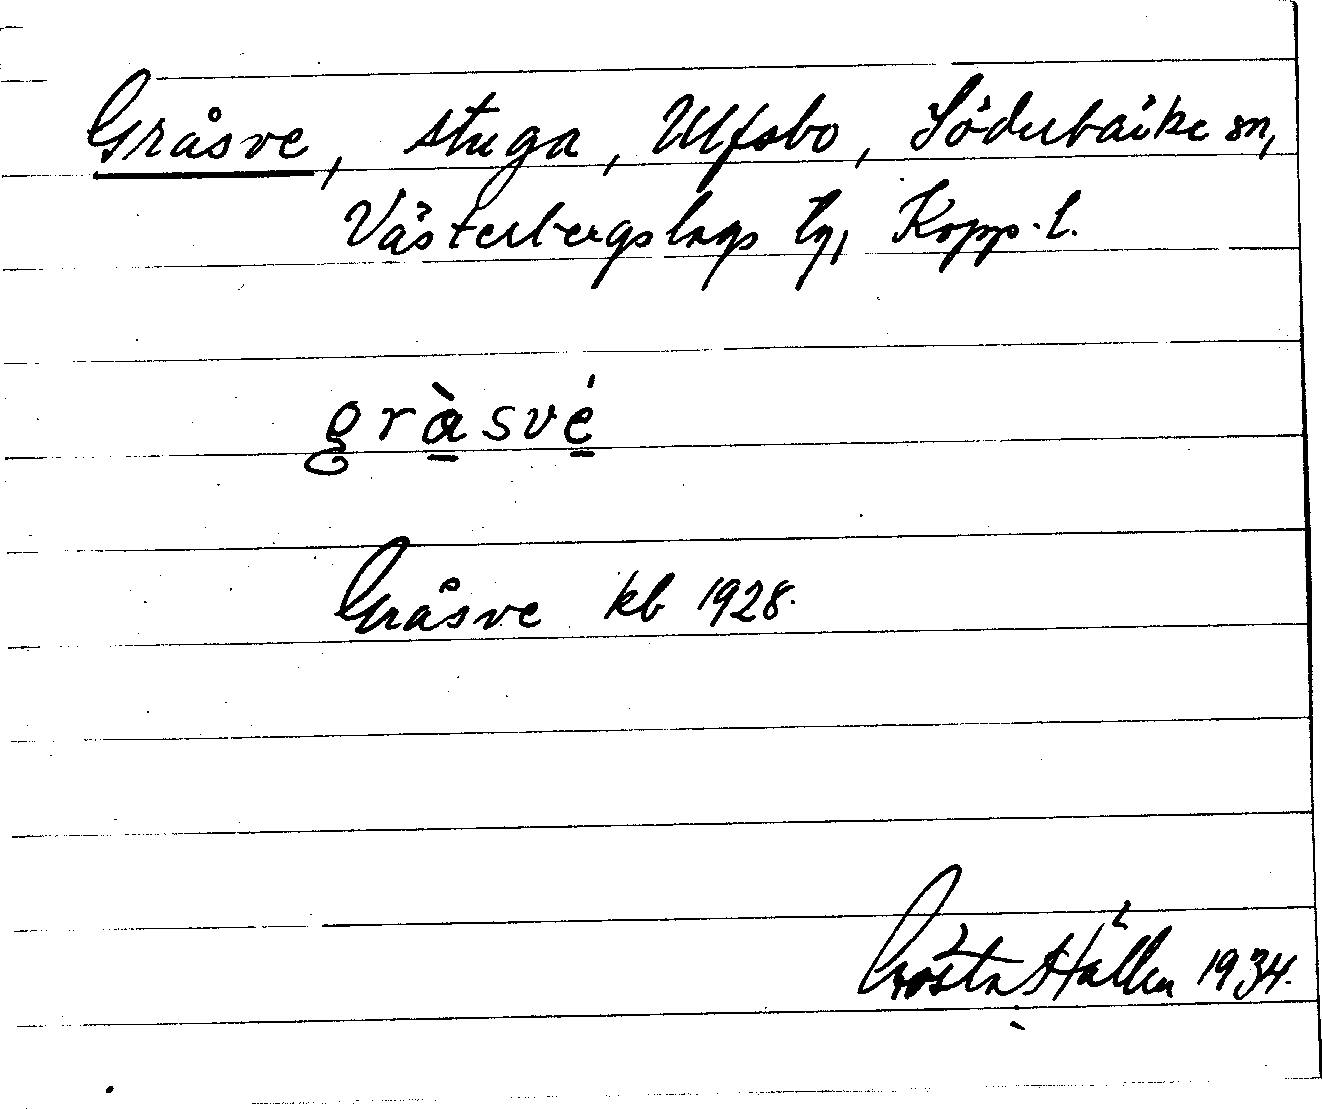 Gråsve, stuga, Ulfsbo, Söderbärke sn,
Västerbergslags tg, Kopp. l.
gràsvé
Gråsve kb 1928.
Gösta Hällen 1934.